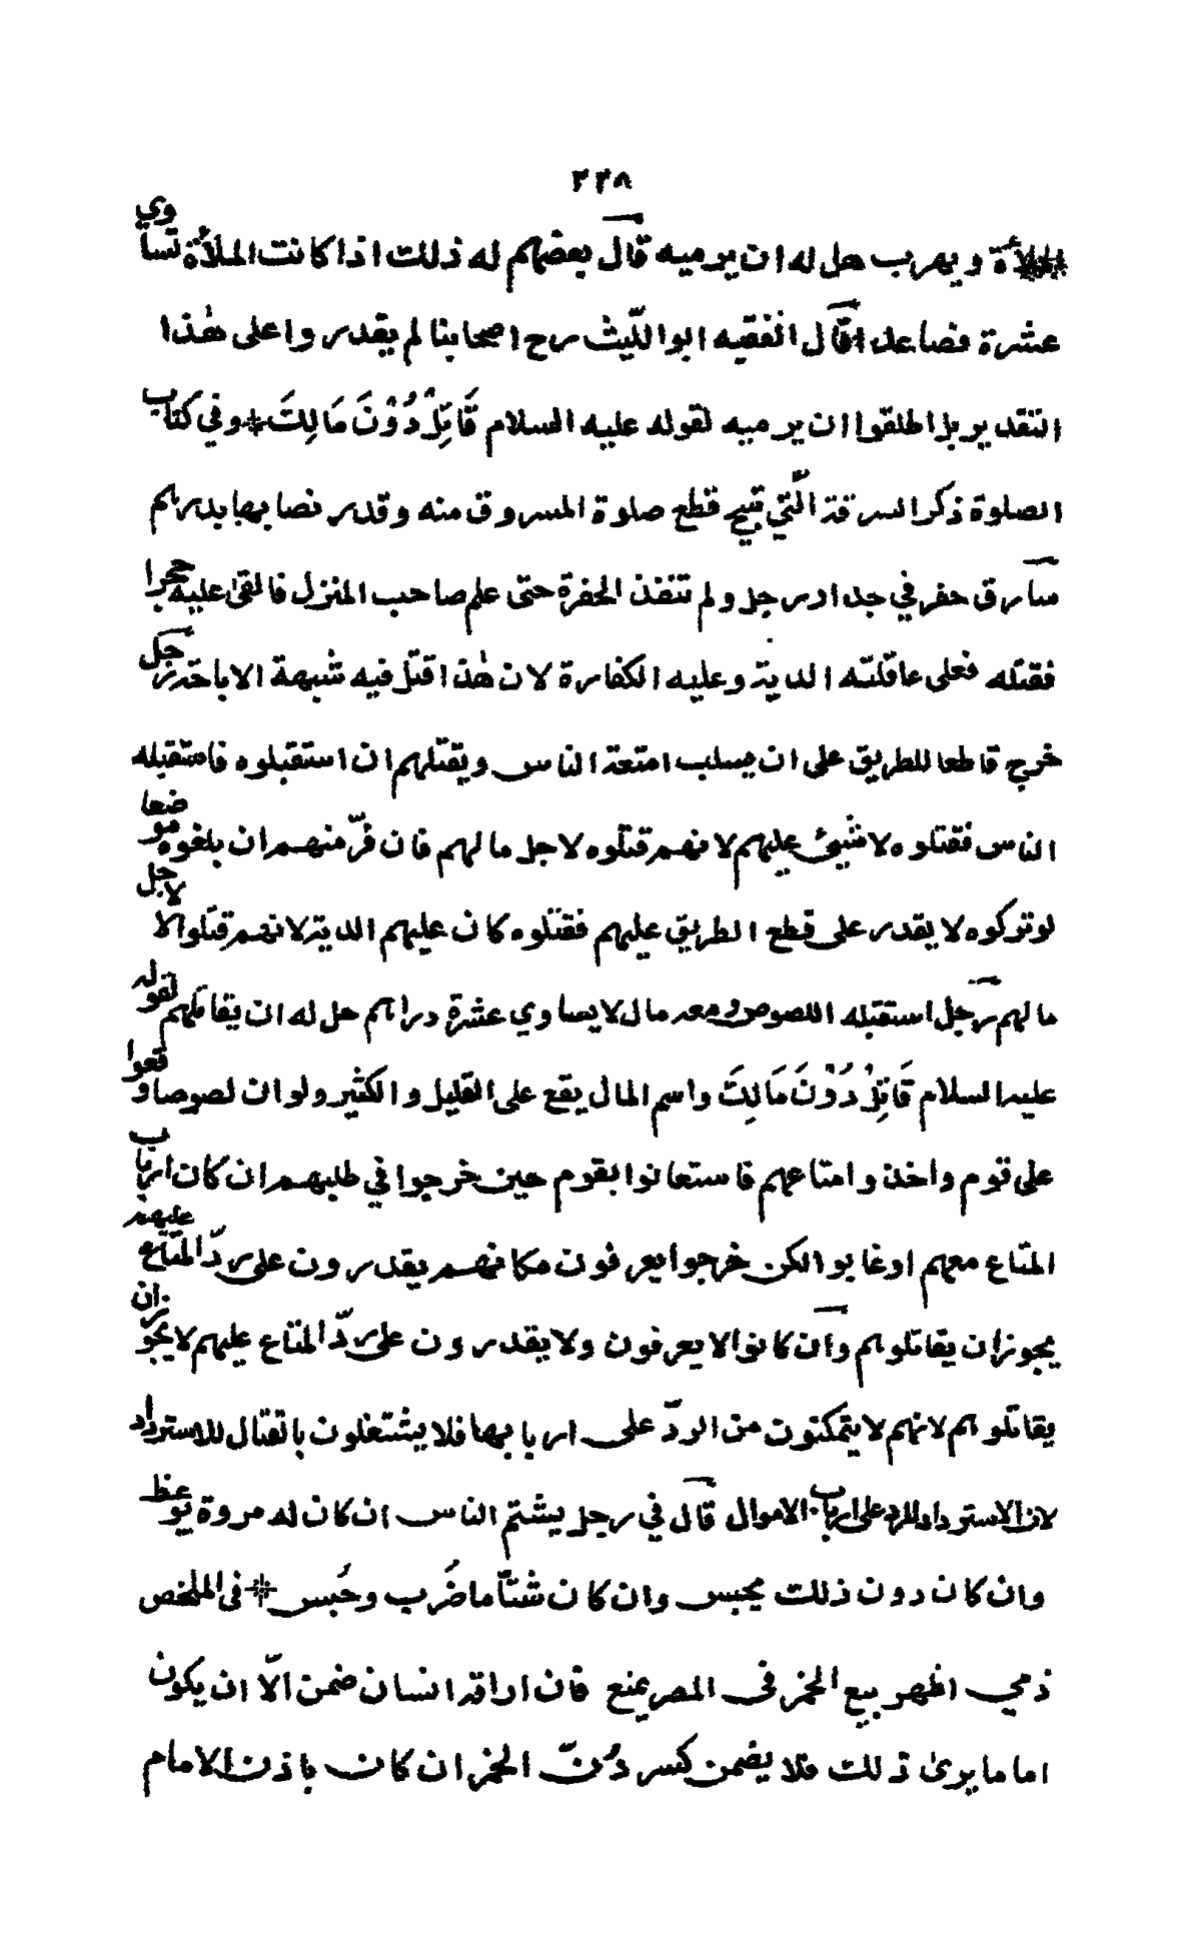 ٢٢٨
الملأة ويهرب هل له ان يرميه قال بعضهم له ذلك اذا كانت الملأة تساوي
عشرة فصاعدا قال الفقيه ابو اللّيث رح اصحابنا لم يقدروا على هٰذا
التقدير بل اطلقوا ان يرميه لقوله عليه السلام قَاتِلْ دُوْنَ مَالِكَ * وفي كتاب
الصلوة ذكر السرقة الّتي تبيح قطع صلوة المسروق منه وقدر نصابها بدرهم
سارق حفر في جدار رجل ولم تنفذ الحفرة حتى علم صاحب المنزل فالقىٰ عليه حجرا
فقتله فعلى عاقلته الدية وعليه الكفارة لان هٰذا قتل فيه شبهة الاباحة رجل
خرج قاطعا للطريق على ان يسلب امتعة الناس ويقتلهم ان استقبلوه فاستقبله
الناس فقتلوه لا شيئ عليهم لانهم قتلوه لاجل مالهم فان فرّ منهم ان بلغوه موضعا
لو تركوه لا يقدر على قطع الطريق عليهم فقتلوه كان عليهم الدية لانهم قتلوا لا لاجل
مالهم رجل استقبله اللصوص ومعه مال لا يساوي عشرة دراهم هل له ان يقاتلهم لقوله
عليه السلام قَاتِلْ دُوْنَ مَالِكَ واسم المال يقع على القليل والكثير ولو ان لصوصا وقعوا
على قوم واخذوا متاعهم فاستعانوا بقوم حين خرجوا في طلبهم ان كان ارباب
المتاع معهم او غابوا لكن خرجوا يعرفون مكانهم يقدرون على ردّ المتاع عليهم
يجوز ان يقاتلوهم وان كانوا لا يعرفون ولا يقدرون على ردّ المتاع عليهم لا يجوز ان
يقاتلوهم لانهم لا يتمكنون من الردّ على اربابها فلا يشتغلون بالقتال للاسترداد
لان الاسترداد للرد على ارباب الاموال قال في رجل يشتم الناس ان كان له مروة يوعظ
وان كان دون ذلك يحبس وان كان شتّاما ضُرب وحُبس * فى الملخص
ذمي اظهر بيع الخمر فى المصر يمنع فان اراقه انسان ضمن الّا ان يكون
اماما يرىٰ ذلك فلا يضمن كسر دُنّ الخمر ان كان باذن الامام